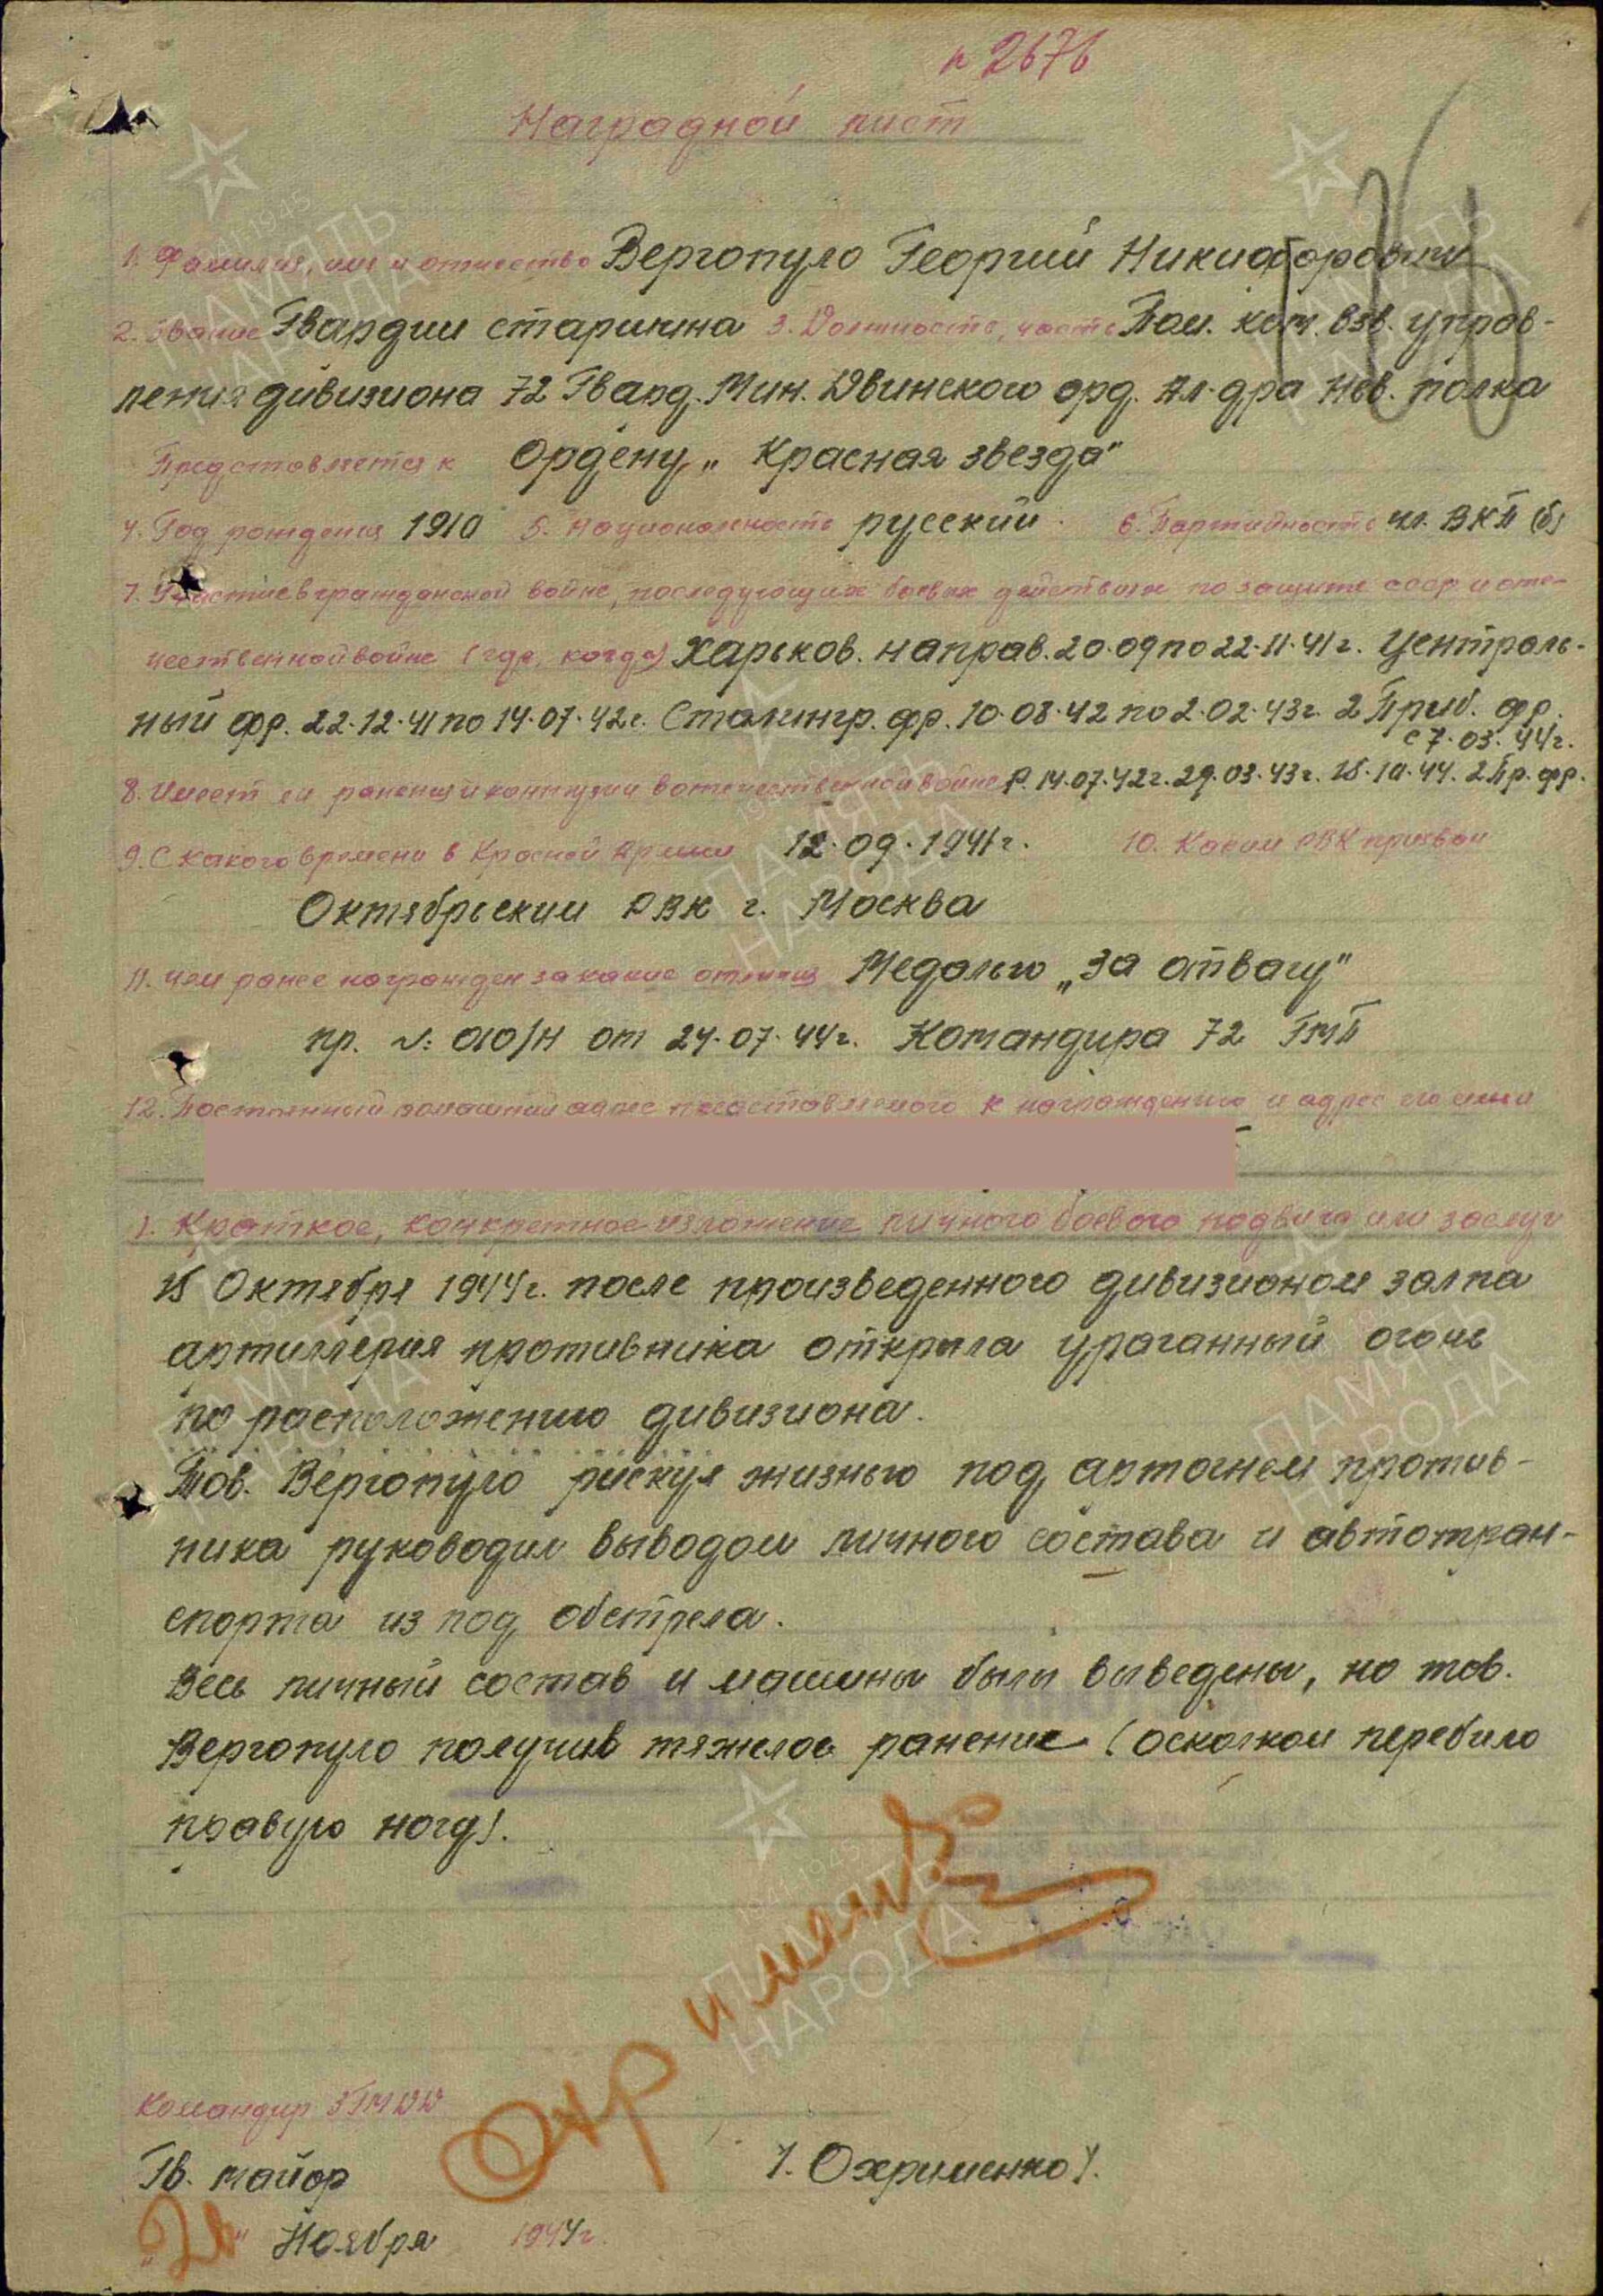 н 2676
Наградной лист
1. Фамилия, имя и отчество Вергопуло Георгий Никифорович
2. Звание Гвардии старшина 3. Должность, часть Пом. ком. взв. управ-
ления дивизиона 72 Гвард. Мин. Двинского орд. Ал-дра Нев. полка
Представляется к Ордену „Красная звезда"
4. Год рождения 1910 5. Национальность русский. 6. Партийность чл. ВКП(б)
7. Участие в гражданской войне, последующих боевых действиях по защите СССР и оте-
чественной войне (где, когда) Харьков. направ. 20.09 по 22.11.41г. Централь-
ный фр. 22.12.41 по 14.07.42г. Сталингр. фр. 10.08.42 по 2.02.43г. 2 Приб. фр.
с 7.03.44г.
8. Имеет ли ранения и контузии в отечественной войне Р. 14.07.42г. 29.03.43г. 15.10.44. 2 Пр. фр.
9. С какого времени в Красной Армии 12.09.1941г. 10. Каким РВК призван
Октябрьским РВК г. Москва
11. Чем ранее награжден за какие отличия Медалью „За отвагу"
пр. №: 010/н от 24.07.44г. Командира 72 ГМП
12. Постоянный домашний адрес представляемого к награждению и адрес его семьи
1. Краткое, конкретное изложение личного боевого подвига или заслуг
15 Октября 1944г. после произведенного дивизионом залпа
артиллерия противника открыла ураганный огонь
по расположению дивизиона.
Тов. Вергопуло рискуя жизнью под артогнем против-
ника руководил выводом личного состава и автотран-
спорта из под обстрела.
Весь личный состав и машины были выведены, но тов.
Вергопуло получив тяжелое ранение (осколком перебило
правую ногу).
Командир 3 ГМДД
Гв. майор /. Охрименко /.
Ноября 1944г.
1941-1945
ПАМЯТЬ
НАРОДА